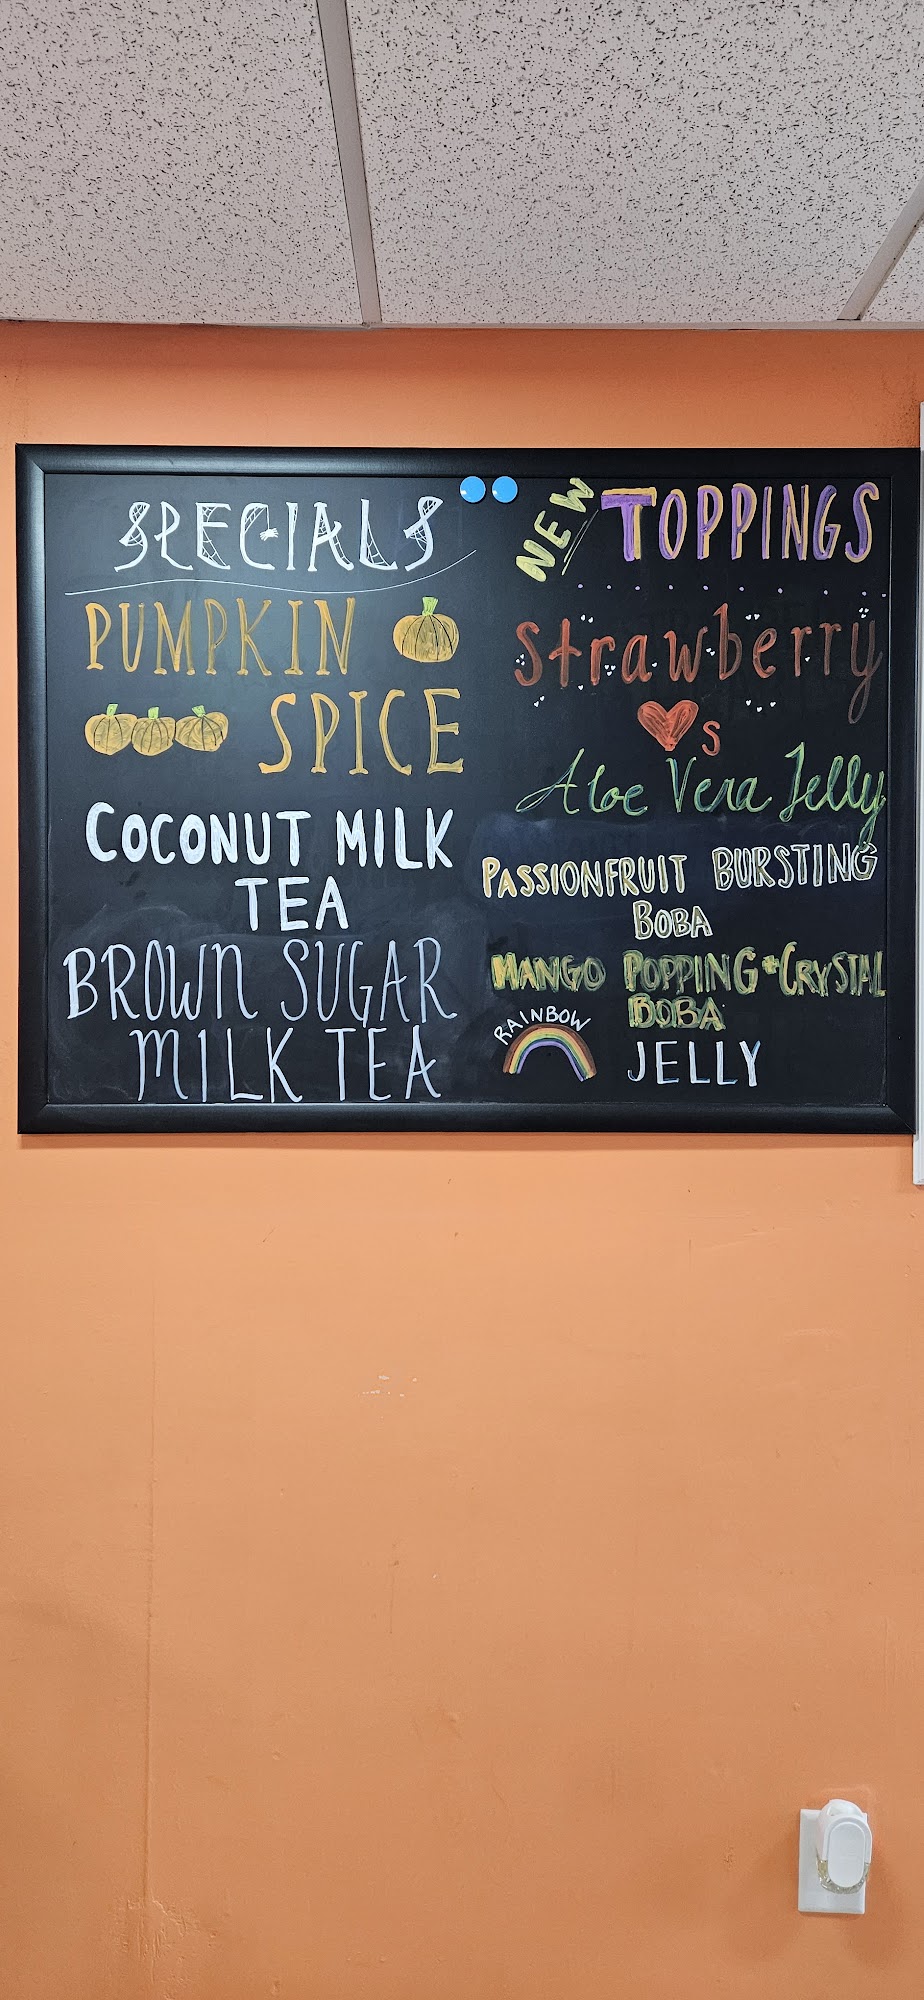 SPECIALS
PUMPKIN
SPICE
COCONUT MILK
TEA
BROWN SUGAR
MILK TEA
NEW TOPPINGS
Strawberry
s
Aloe Vera Jelly
PASSIONFRUIT BURSTING
BOBA
MANGO POPPING + CRYSTAL
BOBA
RAINBOW
JELLY